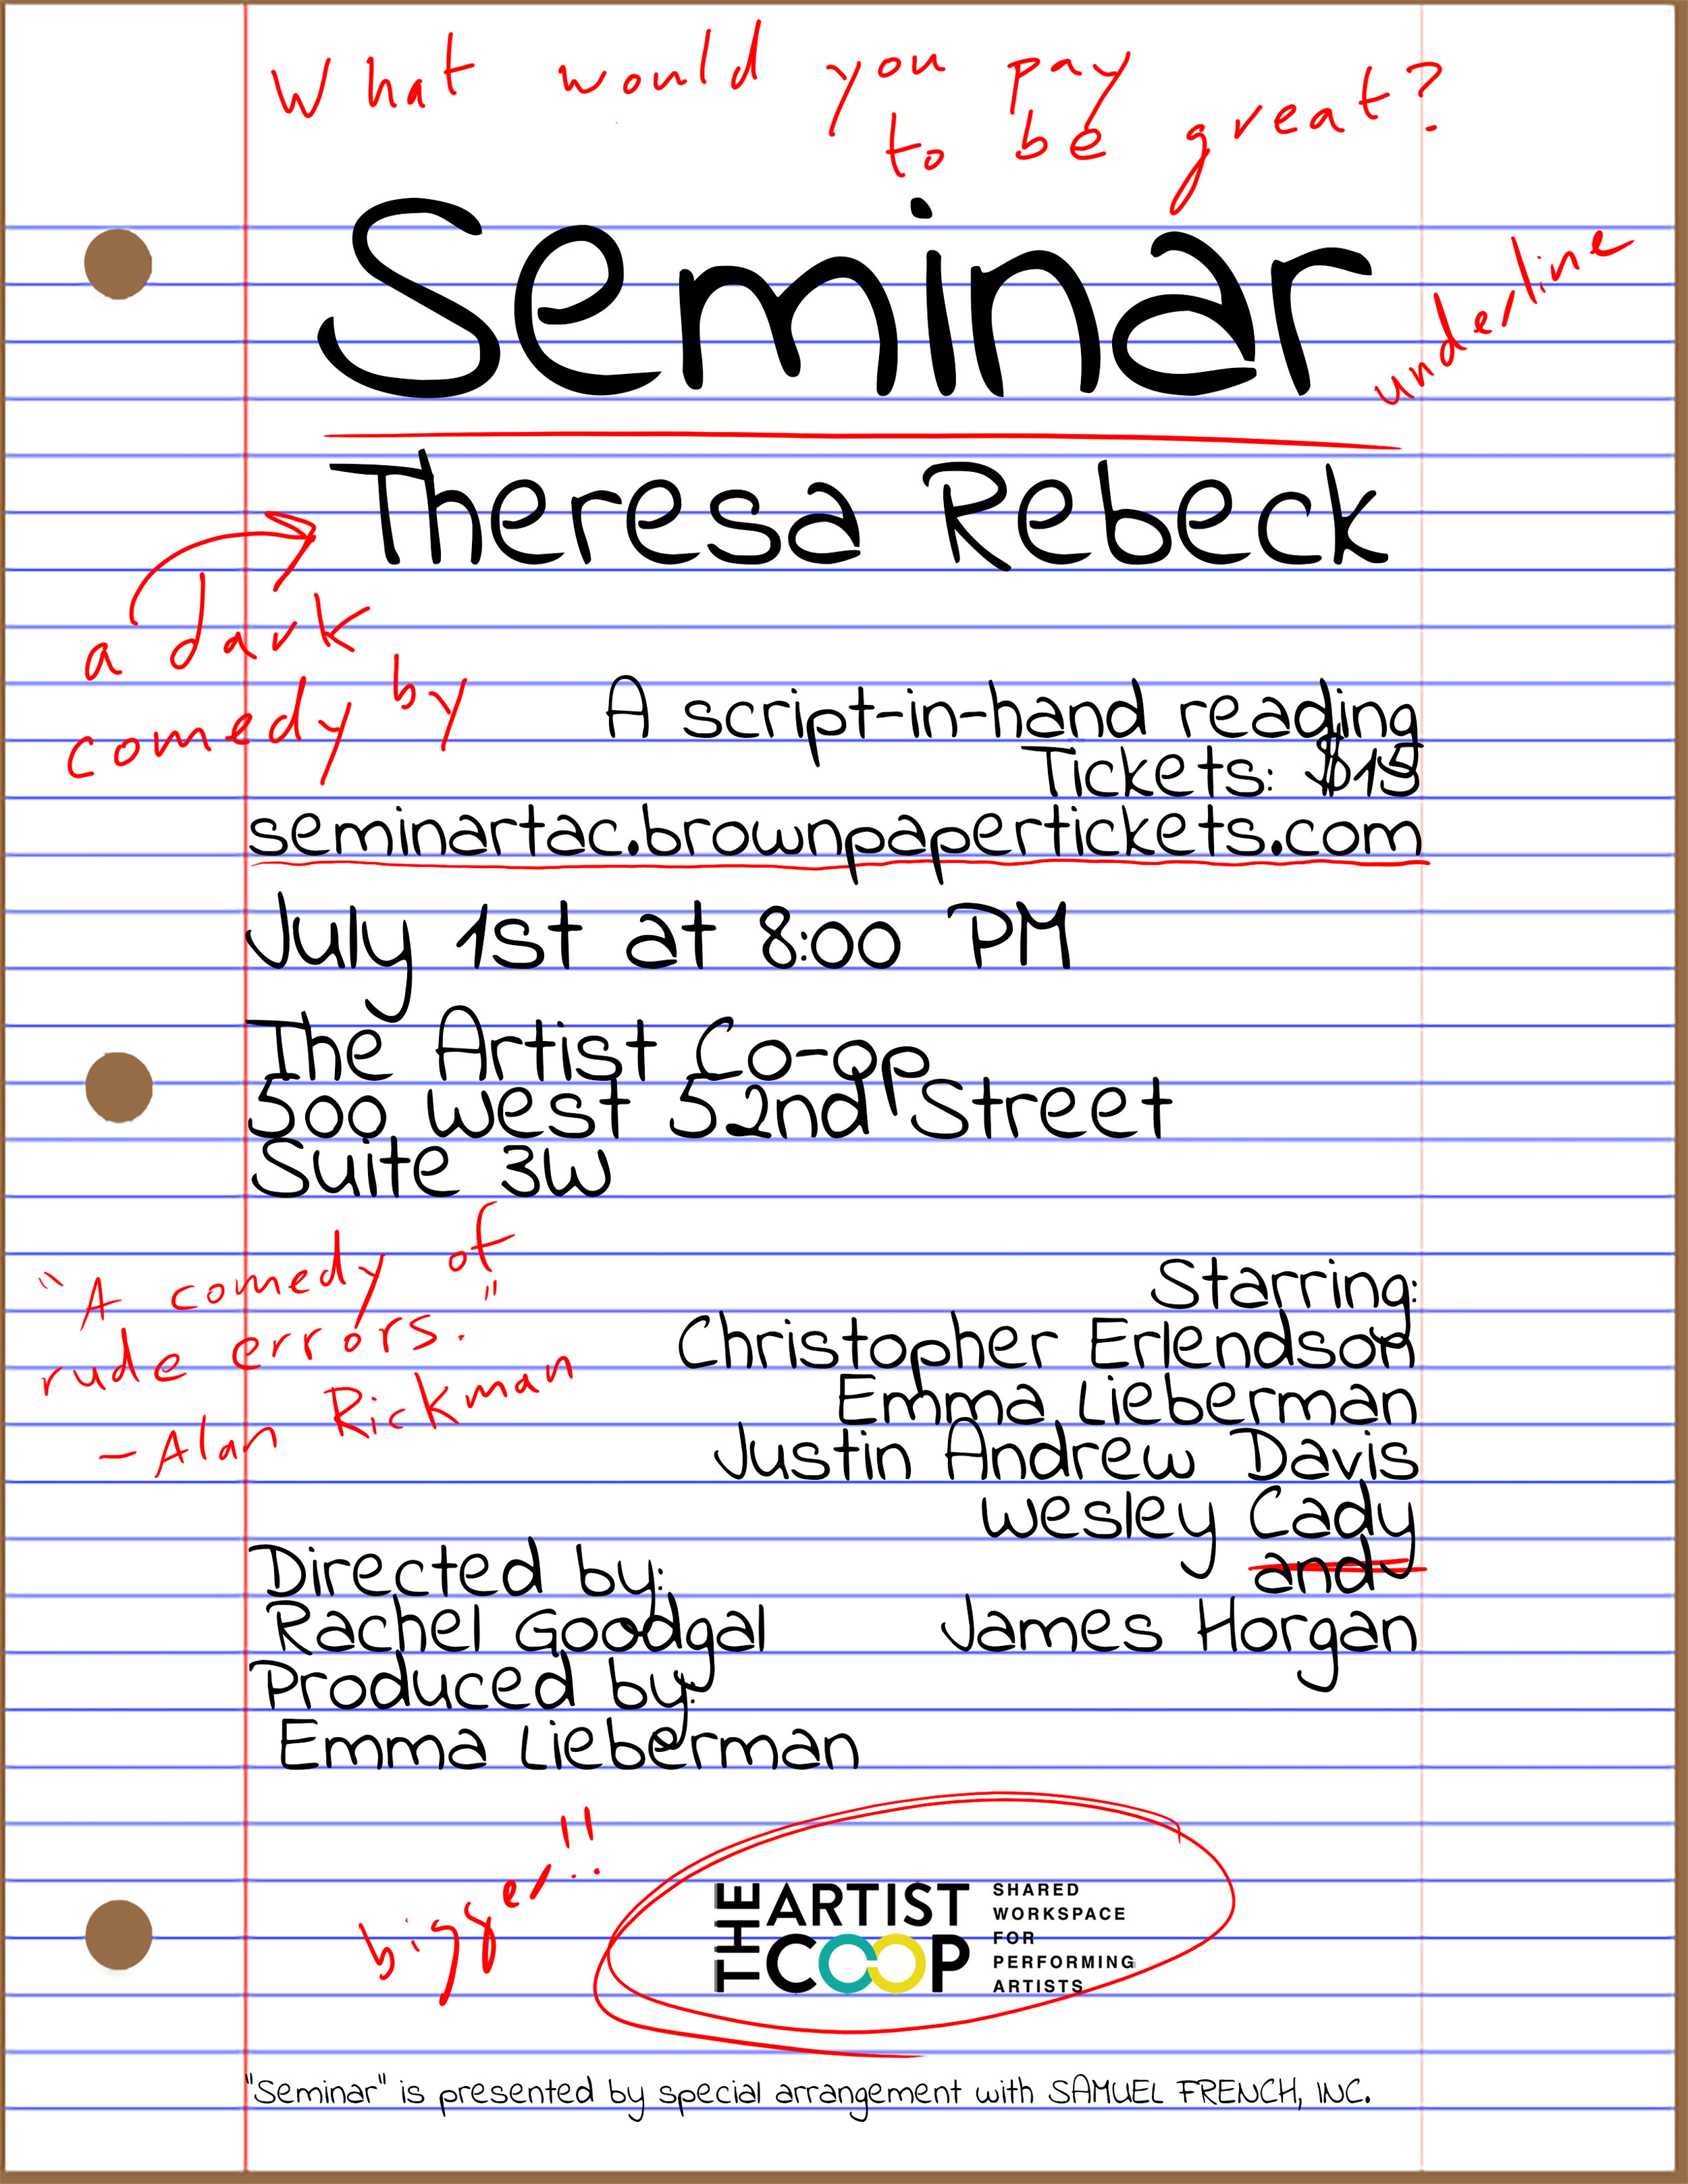 What would you pay
to be great?
Seminar
underline
Theresa Rebeck
a dark
comedy by
A script-in-hand reading
Tickets: $15
seminartac.brownpapertickets.com
July 1st at 8:00 PM
The Artist Co-op
500 West 52nd Street
Suite 3W
"A comedy of
rude errors."
- Alan Rickman
Starring:
Christopher Erlendson
Emma Lieberman
Justin Andrew Davis
Wesley Cady
and
James Horgan
Directed by:
Rachel Goodgal
Produced by:
Emma Lieberman
bigger!!
THE ARTIST
COOP
SHARED
WORKSPACE
FOR
PERFORMING
ARTISTS
"Seminar" is presented by special arrangement with SAMUEL FRENCH, INC.